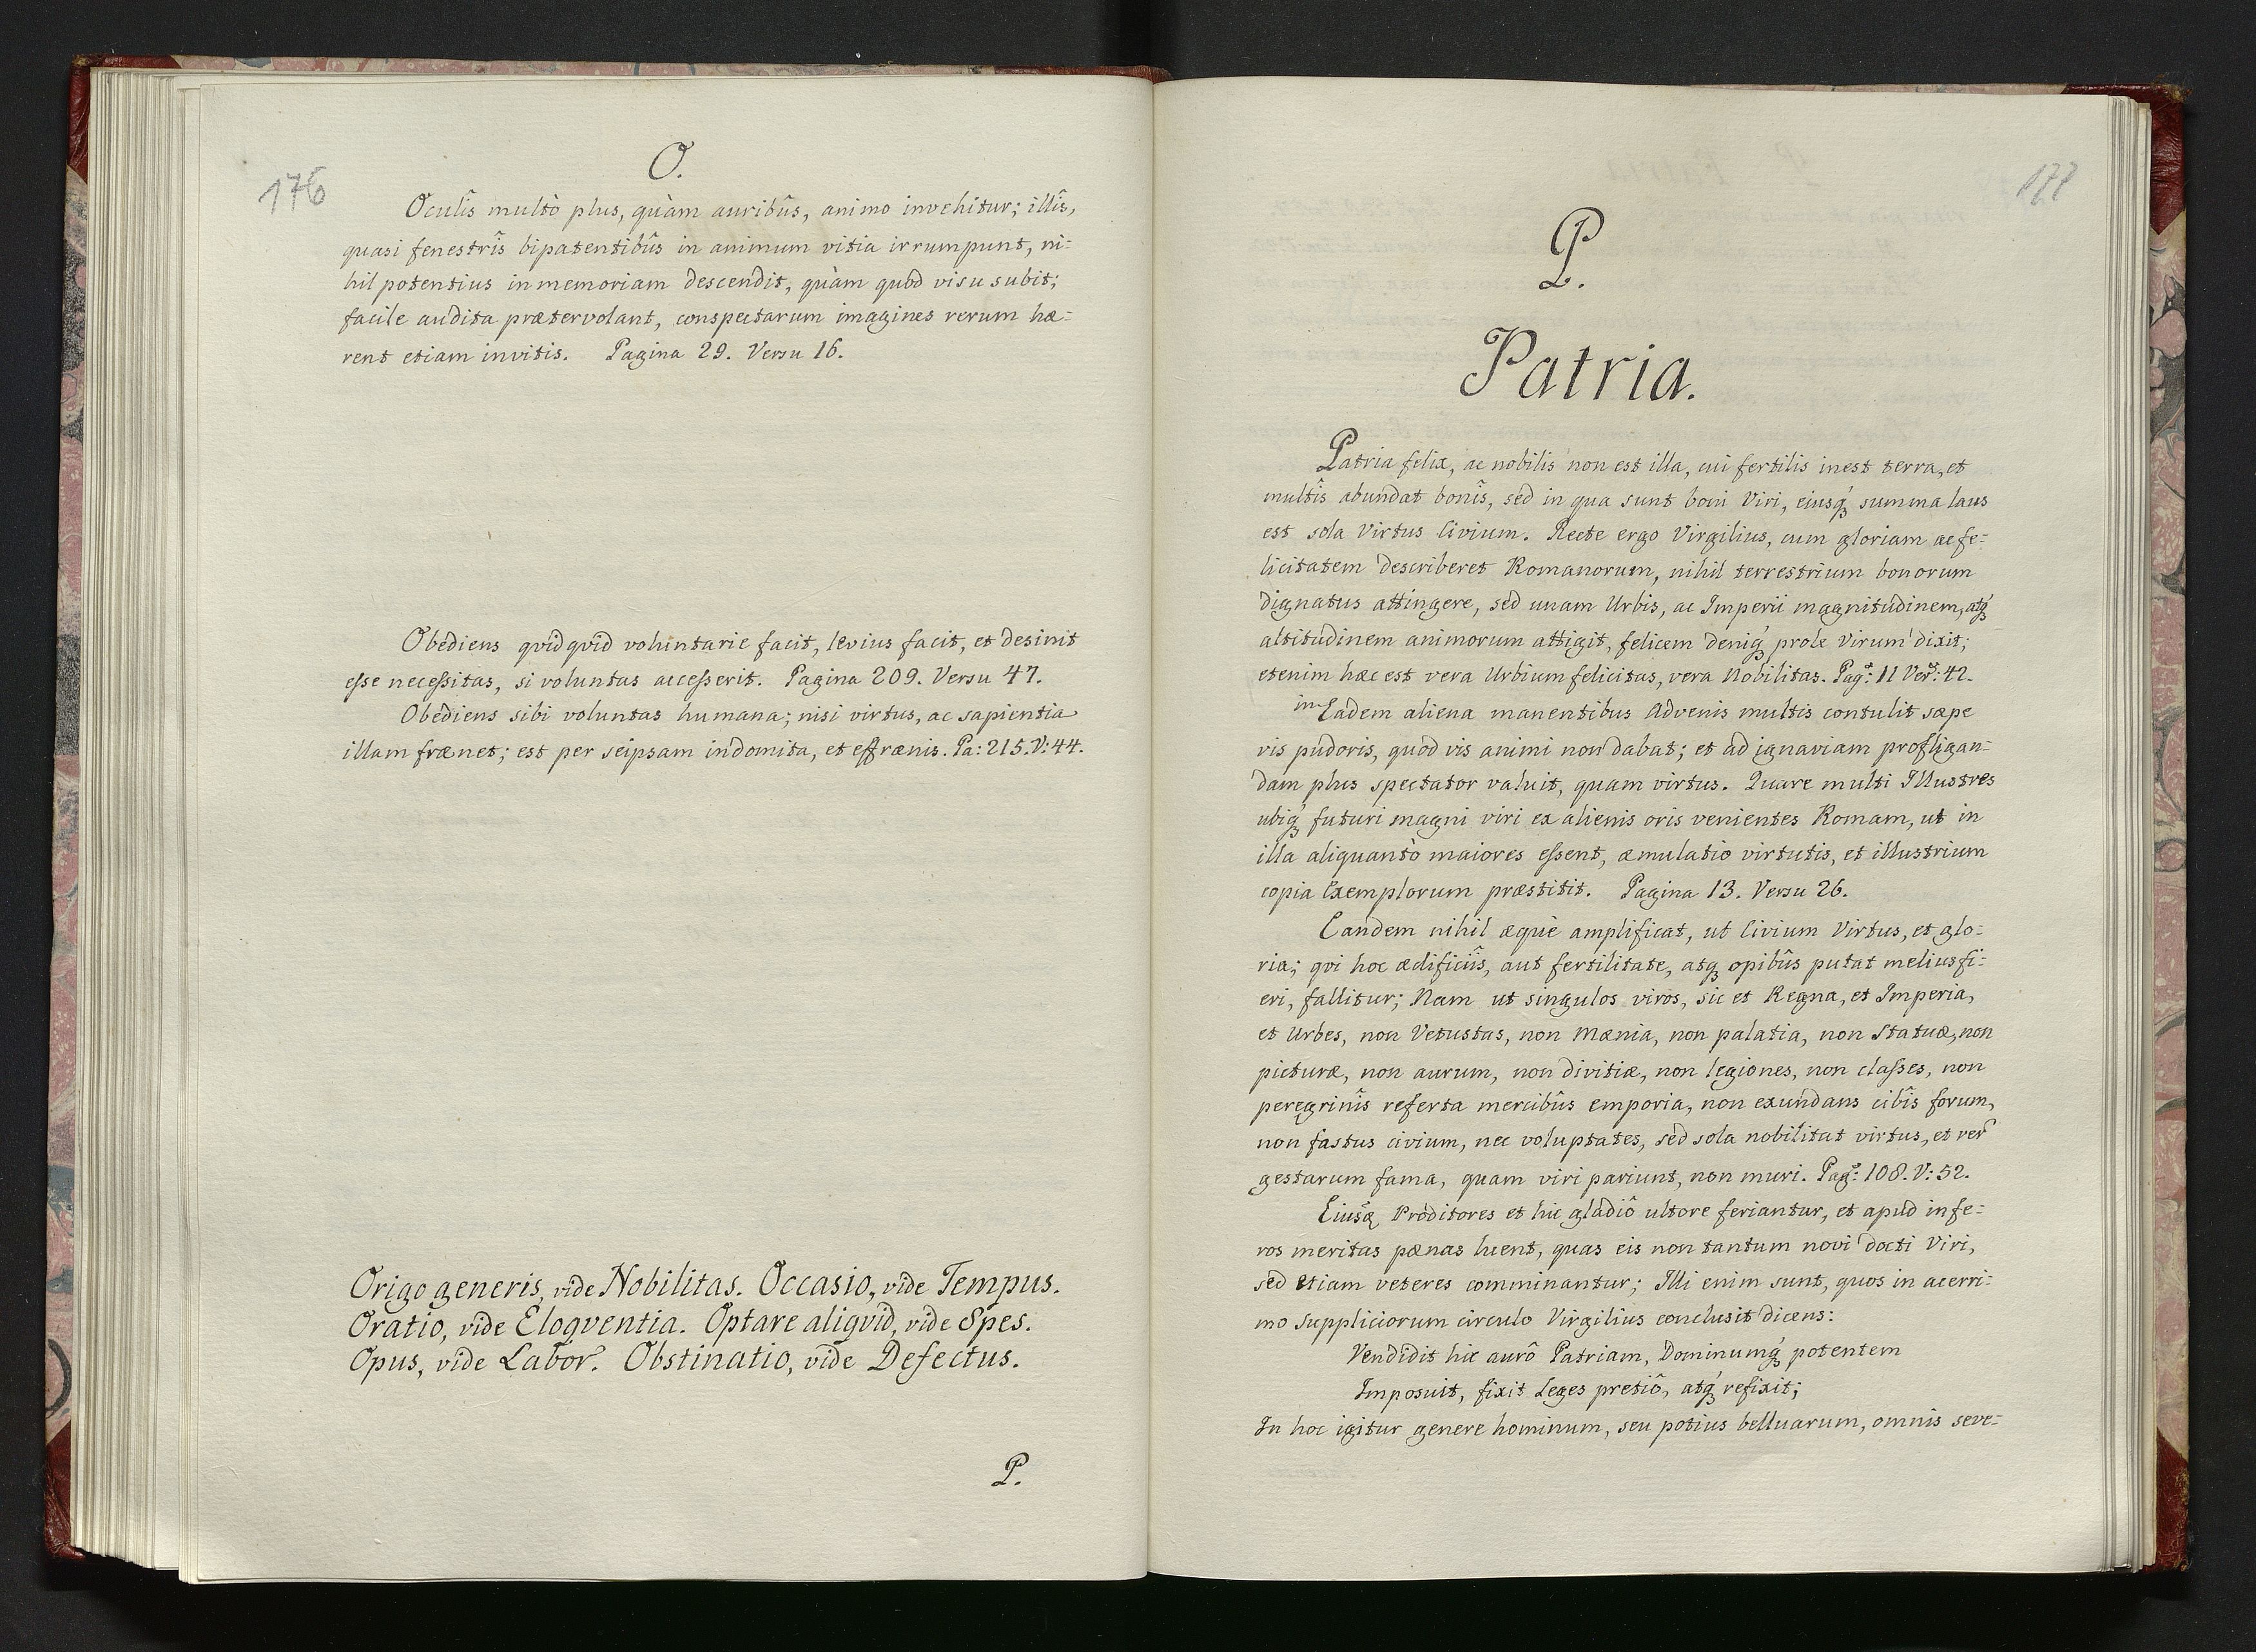 176
O.
Oculîs multò plus, quàm auribûs, animo invehitur; illîs,
quasi fenestrîs bipatentibûs in animum vitia irrumpunt, ni=
hil potentius in memoriam descendit, quàm quod visu subit;
facile audita prætervolant, conspectarum imagines rerum hæ=
rent etiam invitis. Pagina 29. Versu 16.
Obediens qvidqvid voluntarie facit, levius facit, et desinit
eſse neceſsitas, si voluntas acceſserit. Pagina 209. Versu 47.
Obediens sibi voluntas humana; nisi virtus, ac sapientia
illam frænet; est per seipsam indomita, et effrænis. Pa: 215. V: 44.
Origo generis, vide Nobilitas. Occasio, vide Tempus.
Oratio, vide Eloqventia. Optare aliqvid, vide Spes.
Opus, vide Labor. Obstinatio, vide Defectus.
P.
177
P.
Patria.
Patria felix, ac nobilis non est illa, cui fertilis inest terra, et
multîs abundat bonîs, sed in qua sunt boni Viri, eiusq́ꝫ summa laus
est sola Virtus Civium. Recte ergo Virgilius, cum gloriam ac fe=
licitatem describeret Romanorum, nihil terrestrium bonorum
dignatus attingere, sed unam Urbis, ac Imperii magnitudinem, atq́ꝫ
altitudinem animorum attigit, felicem deniq́ꝫ prole Virum dixit;
etenim hæc est vera Urbium felicitas, vera Nobilitas. Pag: 11 Ver: 42.
in Eadem aliena manentibus Advenis multis contulit sæpe
vis pudoris, quod vis animi non dabat; et ad ignaviam profligan=
dam plus spectator valuit, quam virtus. Quare multi Illustres
ubiq́ꝫ futuri magni viri ex alienis oris venientes Romam, ut in
illa aliquantò maiores eſsent, æmulatio virtutis, et illustrium
copia Exemplorum præstitit. Pagina 13. Versu 26.
Eandem nihil æquè amplificat, ut Civium Virtus, et glo=
ria; qvi hoc ædificiîs, aut fertilitate, atqꝫ opibûs putat melius fi=
eri, fallitur; Nam ut singulos viros, sic et Regna, et Imperia,
et Urbes, non Vetustas, non Mænia, non palatia, non Statuæ, non
picturæ, non aurum, non divitiæ, non legiones, non claſses, non
peregrinîs referta mercibûs emporia, non exundans cibîs forum,
non fastus civium, nec voluptates, sed sola nobilitat virtus, et rer̃
gestarum fama, quam viri pariunt, non muri. Pag: 108. V: 52.
Eiusqꝫ Proditores et hic gladiô ultore feriantur, et apud infe=
ros meritas pænas luent, quas eis non tantum novi docti Viri,
sed etiam veteres comminantur; Illi enim sunt, quos in acerri=
mo suppliciorum circulo Virgilius conclusit dicens:
Vendidit hic aurô Patriam, Dominumq́ꝫ potentem
Imposuit, fixit Leges pretiô, atq́ꝫ refixit;
In hoc igitur genere hominum, seu potius belluarum, omnis seve=